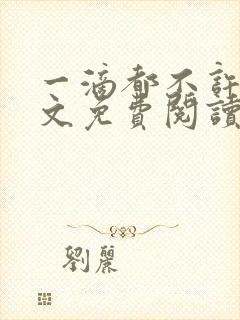 一滴都不許
文免費閱讀
劉麗